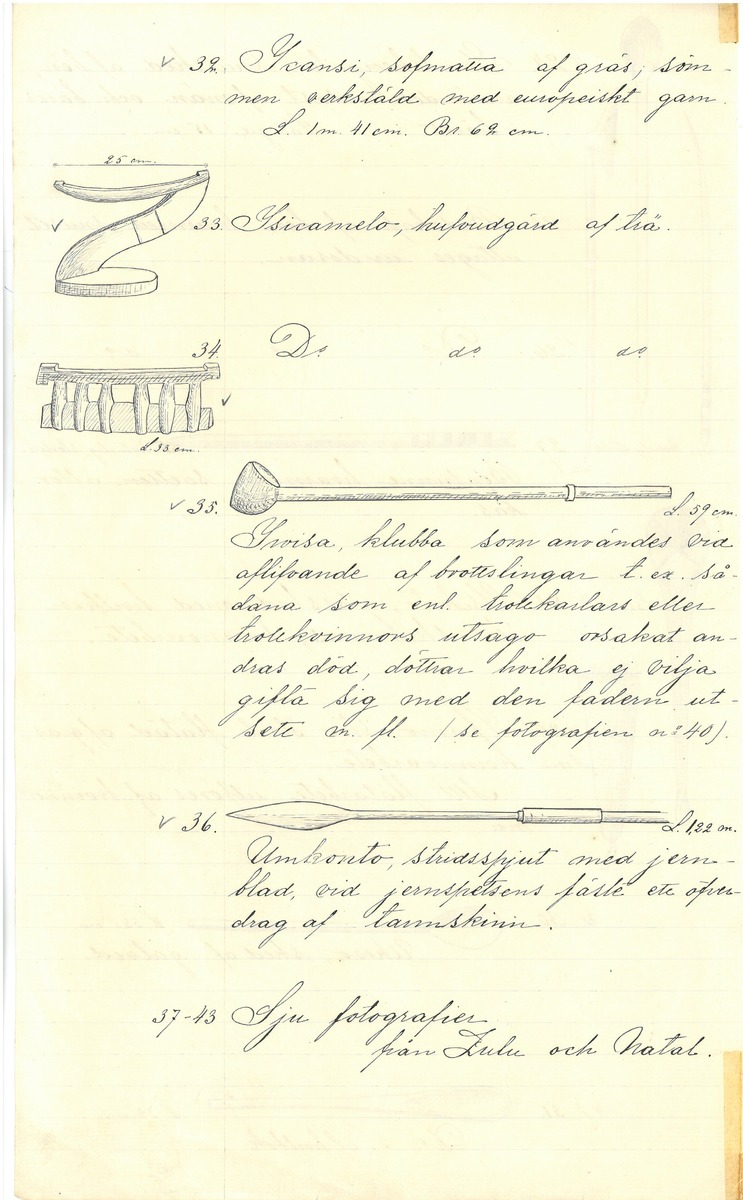 ✓ 32. Icansi, sofmatta af gräs; söm-
men verkstäld med europeiskt garn.
L. 1 m. 41 cm. Br. 62 cm.
25 cm.
✓ 33. Isicamelo, hufvudgärd af trä.
34. Do do do
✓
L. 33 cm.
✓ 35. L. 59 cm.
Iwisa, klubba som användes vid
aflifvande af brottslingar t. ex. så-
dana som enl. trollkarlars eller
trollkvinnors utsago orsakat an-
dras död, döttrar hvilka ej vilja
gifta sig med den fadern ut-
sett m. fl. (se fotografien no 40).
✓ 36. L. 1,22 m.
Umkonto, stridsspjut med jern-
blad, vid jernspetsens fäste ett öfver-
drag af tarmskinn.
37-43 Sju fotografier
från Zulu och Natal.